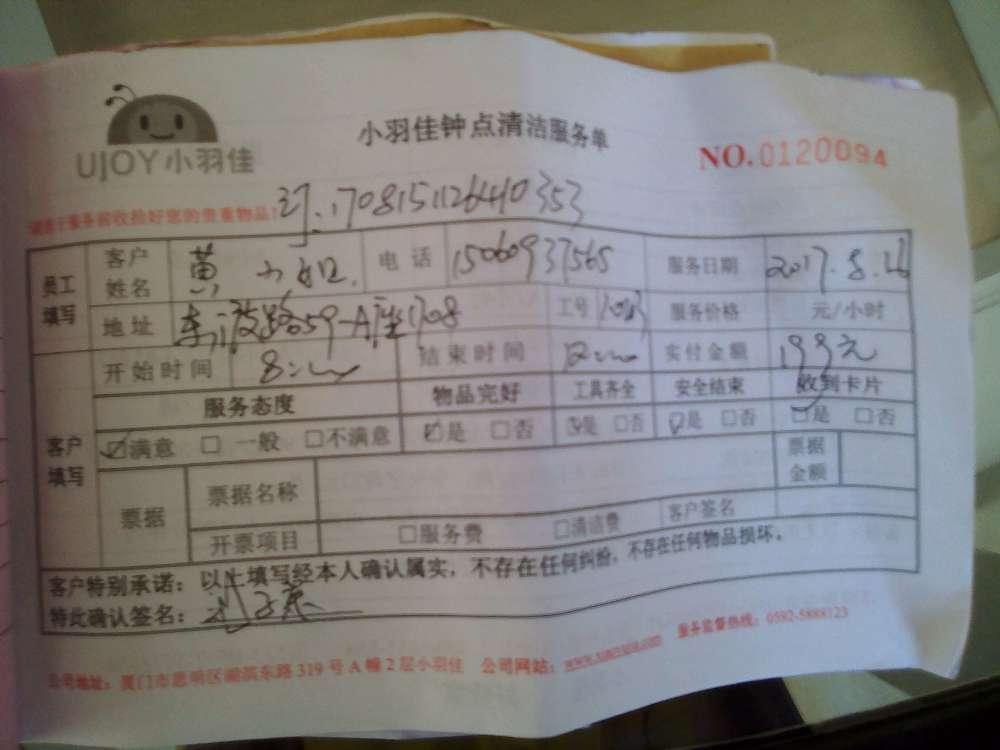 UJOY小羽佳
小羽佳钟点清洁服务单
NO.0120094
请于服务前收拾好您的贵重物品!
170815112640353
员工填写 客户姓名 黄小姐 电话 15060937565 服务日期 2017.8.16
地址 东渡路059-A座1708 工号 服务价格 元/小时
开始时间 8: 结束时间 12: 实付金额 199元
客户填写 服务态度 物品完好 工具齐全 安全结束 收到卡片
☑满意 □一般 □不满意 ☑是 □否 ☑是 □否 ☑是 □否 ☑是 □否
票据 票据名称 票据金额
开票项目 □服务费 □清洁费 客户签名
客户特别承诺:以上填写经本人确认属实,不存在任何纠纷,不存在任何物品损坏。
特此确认签名:
公司地址:厦门市思明区湖滨东路319号A幢2层小羽佳 公司网站: 服务监督热线:0592-5888123